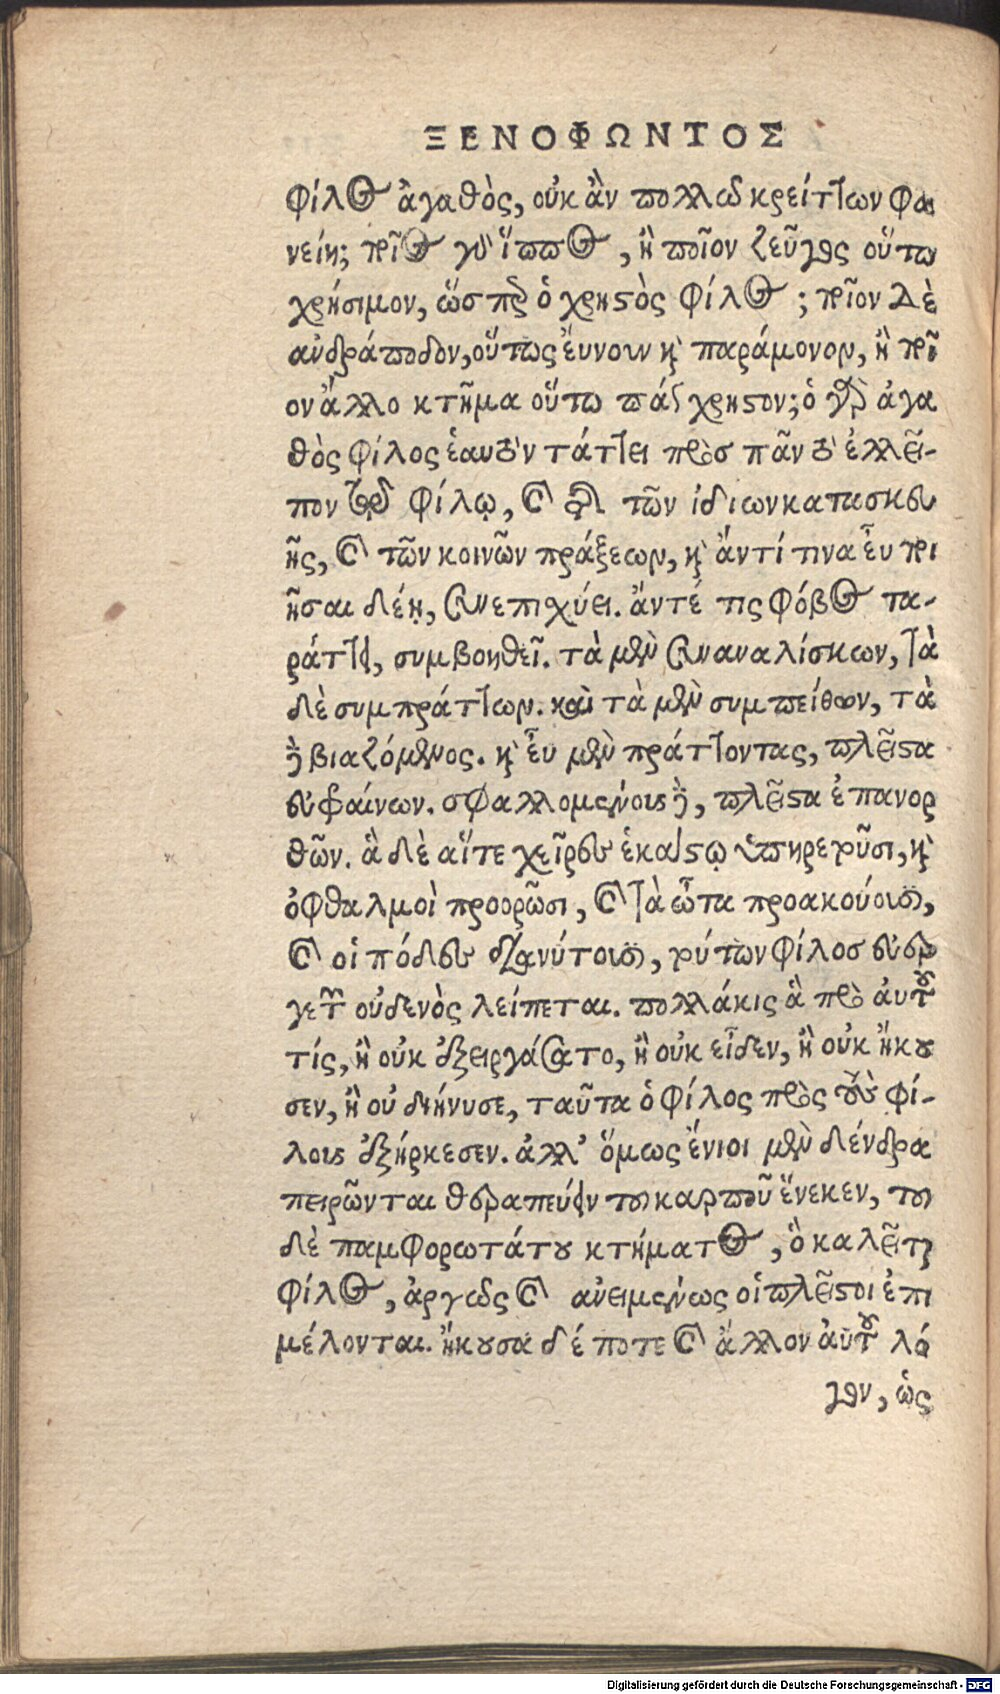 ΞΕΝΟΦΩΝΤΟΣ
φίλος ἀγαθὸς, οὐκ ἂν πολλῷ κρείττων φα
νείη; ποῖος γὰρ ἵππος, ἢ ποῖον ζεῦγος οὕτω
χρήσιμον, ὥσπερ ὁ χρηστὸς φίλος; ποῖον δὲ
ἀνδράποδον, οὕτως ἔυνουν καὶ παράμονον, ἢ ποῖ
ον ἄλλο κτῆμα οὕτω πάγχρηστον; ὁ γὰρ ἀγα
θὸς φίλος ἑαυτὸν τάττει πρὸς πᾶν τὸ ἐλλεῖ-
πον τῷ φίλῳ, καὶ τῆς τῶν ἰδιων κατασκευ
ῆς, καὶ τῶν κοινῶν πράξεων, καὶ ἄντέ τινα εὖ ποι
ῆσαι δέῃ, συνεπισχύει. ἄντέ τις φόβος τα-
ράττῃ, συμβοηθεῖ. τὰ μὲν συναναλίσκων, τὰ
δὲ συμπράττων. καὶ τὰ μὲν συμπείθων, τὰ
δὲ βιαζόμενος. καὶ εὖ μὲν πράττοντας, πλεῖστα
εὐφραίνων. σφαλλομένους δὲ, πλεῖστα ἐπανορ
θῶν. ἃ δὲ αἵτε χεῖρες ἑκάστῳ ὑπηρετοῦσι, καὶ
ὀφθαλμοὶ προορῶσι, καὶ τὰ ὦτα προακούουσι,
καὶ οἱ πόδες διανύτουσι, τούτων φίλος εὐερ
γετῶν οὐδενὸς λείπεται. πολλάκις ἃ πρὸ αὑτοῦ
τίς, ἢ οὐκ ἐξειργάσατο, ἢ οὐκ εἶδεν, ἢ οὐκ ἤκου
σεν, ἢ οὐ διήνυσε, ταῦτα ὁ φίλος πρὸς τοὺς φί-
λους ἐξήρκεσεν. ἀλλ' ὅμως ἔνιοι μὲν δένδρα
πειρῶνται θεραπεύειν του καρποῦ ἕνεκεν, του
δὲ παμφορωτάτου κτήματος, ὃ καλεῖται
φίλος, ἀργῶς καὶ ἀνειμένως οἱ πλεῖστοι ἐπι
μέλονται. ἤκουσα δέ ποτε καὶ ἄλλον αὐτοῦ λό
γον, ὡς
Digitalisierung gefördert durch die Deutsche Forschungsgemeinschaft - DFG